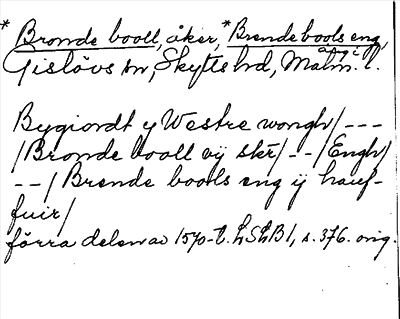 * Bronde booll, åker, * Brende bools eng, äng i
Gislövs sn, Skytts hd, Malm. l.
Bygiordt y Westre wongh/ ---
/Bronde booll vij skr/ -- /Engh/
-- / Brende bools eng ij hauf-
fuir/
förra delen av 1570-t. LSLB 1, s. 376. orig.